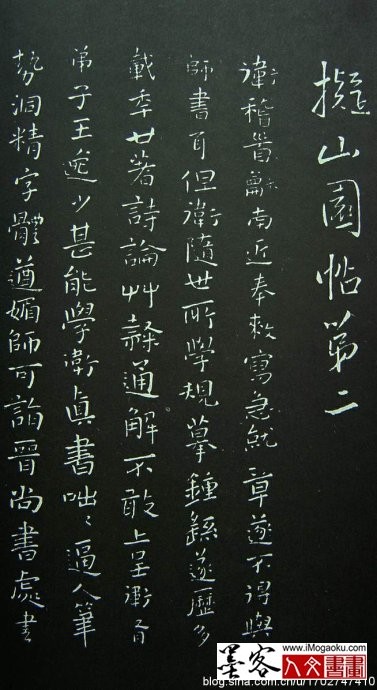 擬山園帖第二
衛稽首龢南近奉敕寫急就章遂不得與
師書耳但衛隨世所學規摹鍾繇遂歷多
載年廿著詩論艸隸通解不敢上呈衛有
弟子王逸少甚能學衛真書咄〻逼人筆
勢洞精字體遒媚師可詣晉尚書處書
墨客
www.imogaoku.com
人文書畫
blog.sina.com.cn/u/1702747410